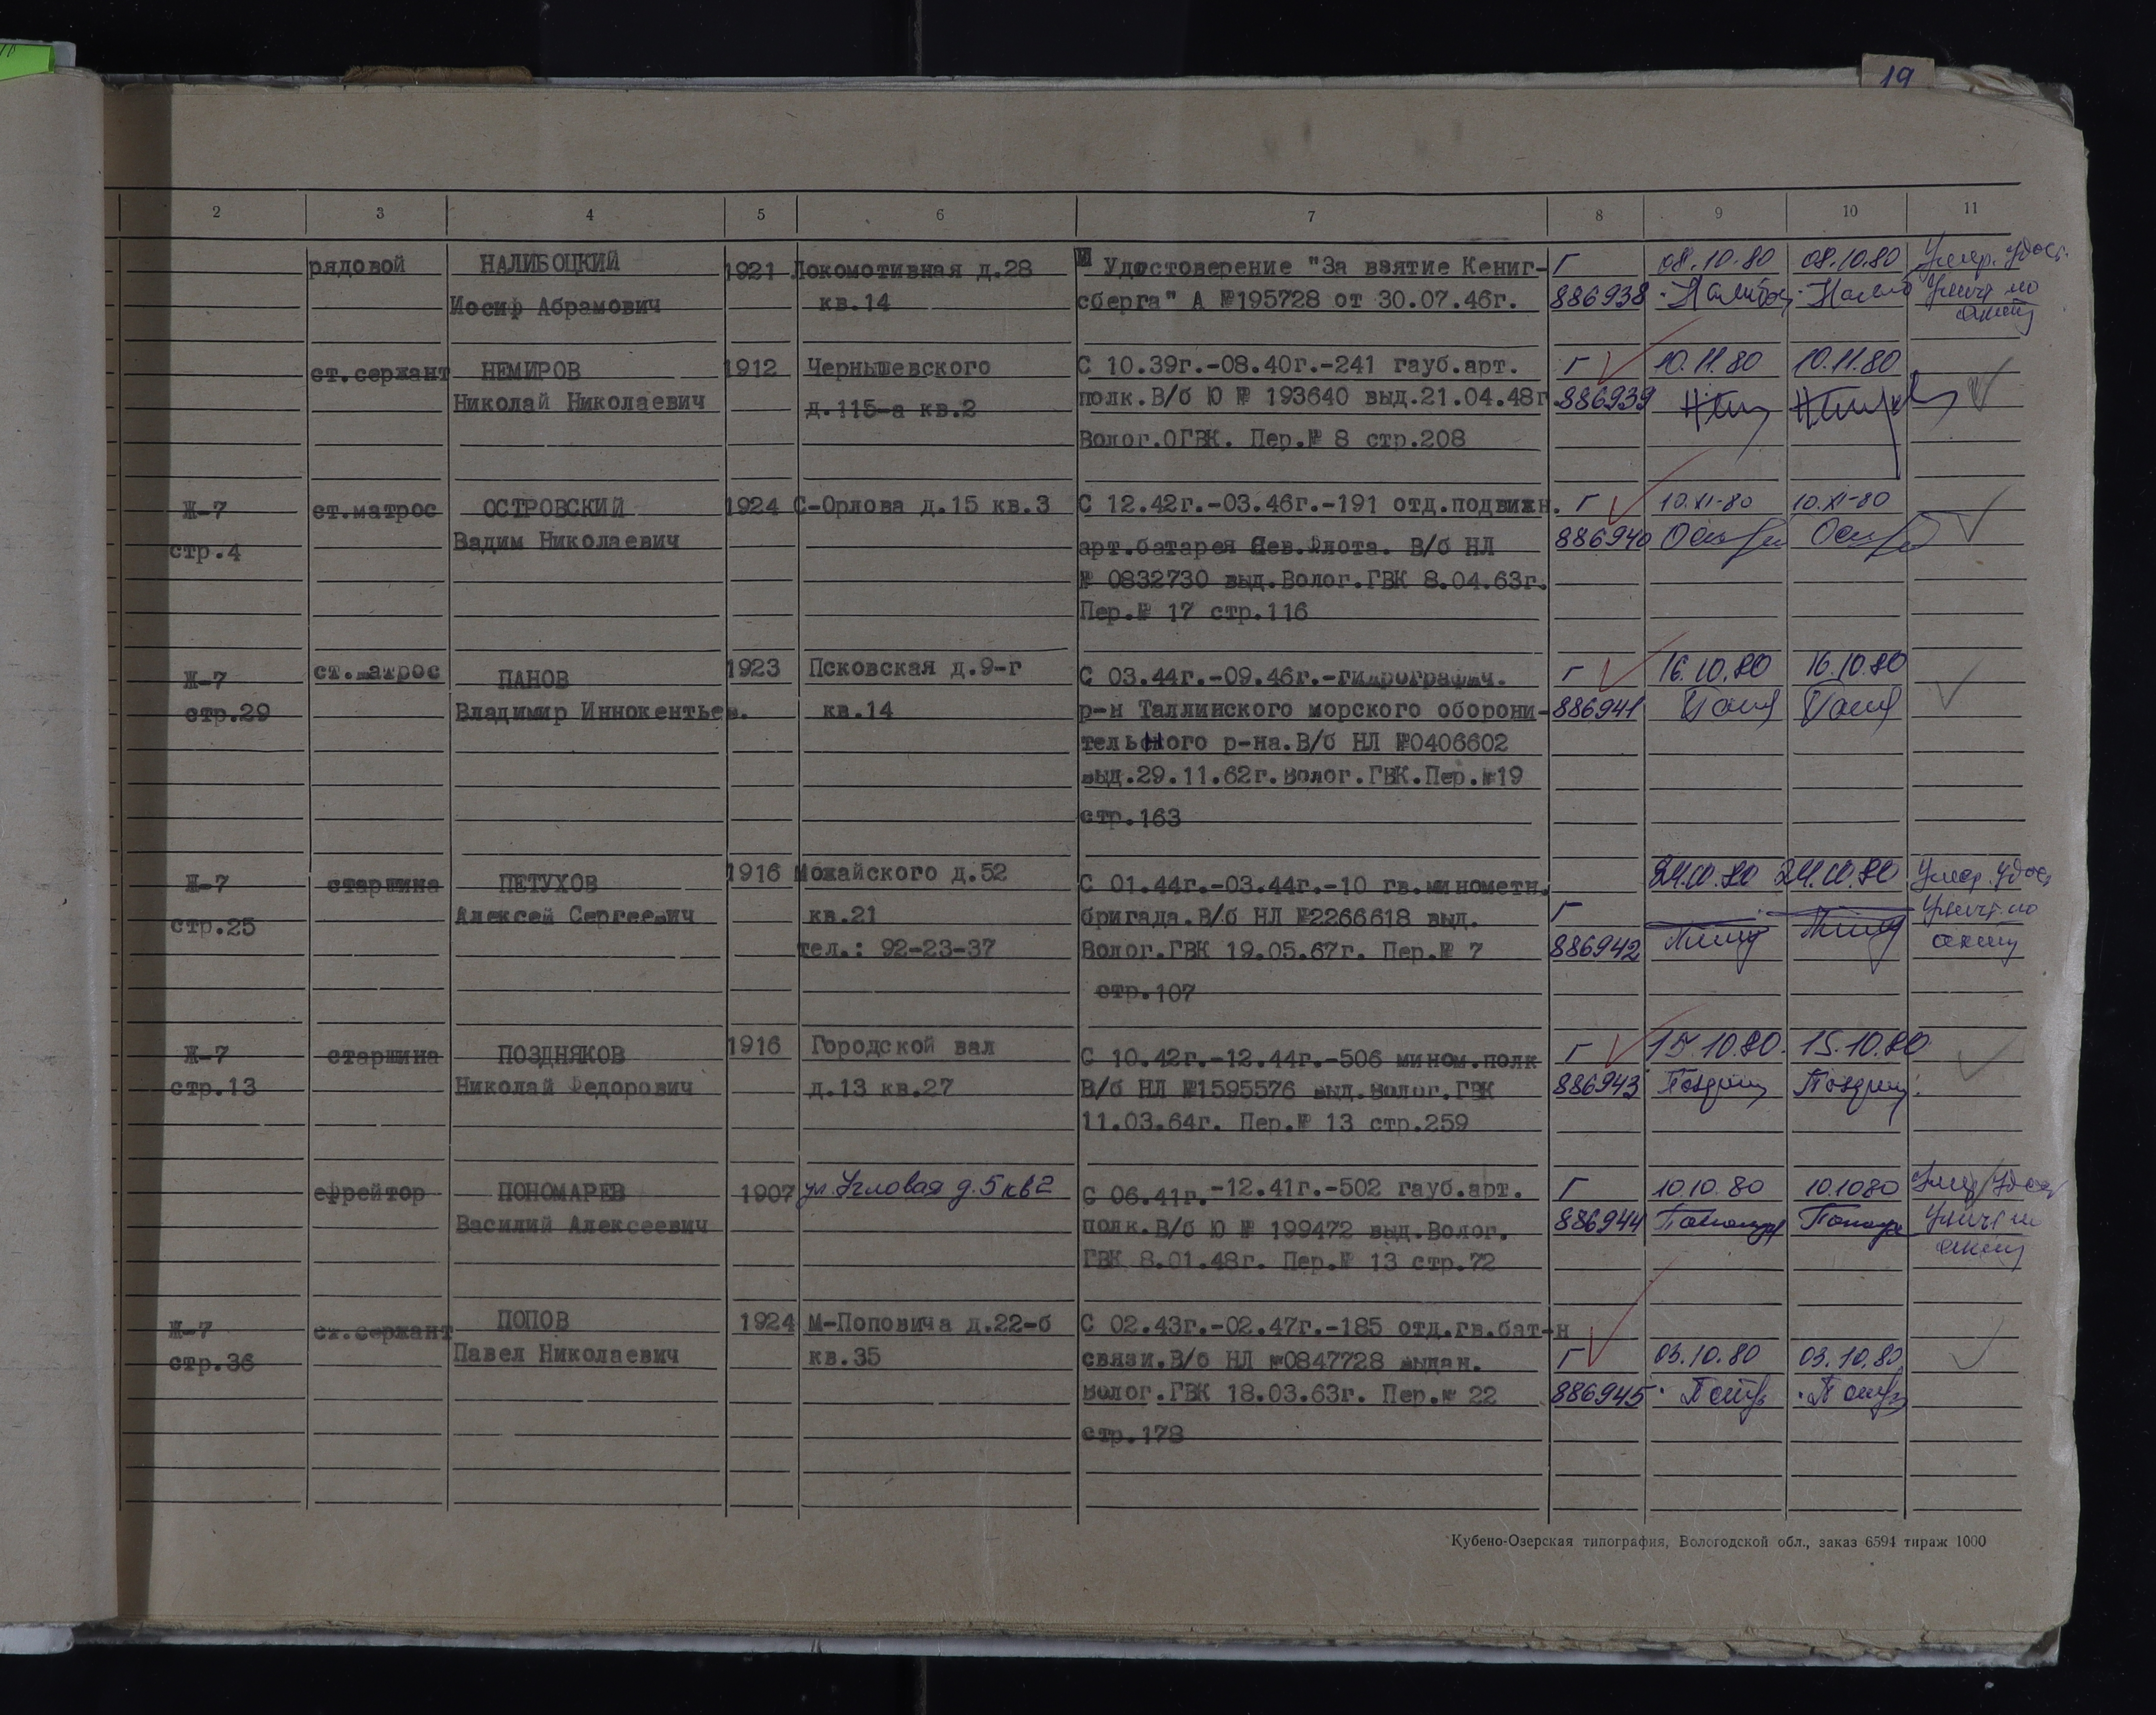 19
2 3 4 5 6 7 8 9 10 11
рядовой НАЛИБОЦКИЙ 1921 Локомотивная д.28 Удостоверение "За взятие Кениг- Г 08.10.80 08.10.80 Умер. Удос.
Иосиф Абрамович кв.14 сберга" А №195728 от 30.07.46г. 886938 Уничт по
акту
ст.сержант НЕМИРОВ 1912 Чернышевского С 10.39г.-08.40г.-241 гауб.арт. Г 10.11.80 10.11.80
Николай Николаевич д.115-а кв.2 полк.В/б Ю № 193640 выд.21.04.48г 886939
Волог.ОГВК. Пер.№ 8 стр.208
Ж-7 ст.матрос ОСТРОВСКИЙ 1924 С-Орлова д.15 кв.3 С 12.42г.-03.46г.-191 отд.подвижн. Г 10.XI-80 10.XI-80
стр.4 Вадим Николаевич арт.батарея Сев.Флота. В/б НЛ 886940
№ 0832730 выд.Волог.ГВК 8.04.63г.
Пер.№ 17 стр.116
Ж-7 ст.матрос ПАНОВ 1923 Псковская д.9-г С 03.44г.-09.46г.-гидрографич. Г 16.10.80 16.10.80
стр.29 Владимир Иннокентьев. кв.14 р-н Таллинского морского оборони- 886941
тельного р-на.В/б НЛ №0406602
выд.29.11.62г.Волог.ГВК.Пер.№19
стр.163
Ж-7 старшина ПЕТУХОВ 1916 Можайского д.52 С 01.44г.-03.44г.-10 гв.минометн. Г 24.10.80 24.10.80 Умер. Удос.
стр.25 Алексей Сергеевич кв.21 бригада.В/б НЛ №2266618 выд. Уничт. по
тел.: 92-23-37 Волог.ГВК 19.05.67г. Пер.№ 7 886942 акту
стр.107
Ж-7 старшина ПОЗДНЯКОВ 1916 Городской вал С 10.42г.-12.44г.-506 мином.полк Г 15.10.80. 15.10.80
стр.13 Николай Федорович д.13 кв.27 В/б НЛ №1595576 выд.Волог.ГВК 886943
11.03.64г. Пер.№ 13 стр.259
ефрейтор ПОНОМАРЕВ 1907 ул. Угловая д.5 кв 2 С 06.41г.-12.41г.-502 гауб.арт. Г 10.10.80 10.10.80 Умер Удос
Василий Алексеевич полк.В/б Ю № 199472 выд.Волог. 886944 Уничт по
ГВК 8.01.48г. Пер.№ 13 стр.72 акту
Ж-7 ст.сержант ПОПОВ 1924 М-Поповича д.22-б С 02.43г.-02.47г.-185 отд.гв.бат-н
стр.36 Павел Николаевич кв.35 связи.В/б НЛ №0847728 выдан. Г 03.10.80 03.10.80
Волог.ГВК 18.03.63г. Пер.№ 22 886945
стр.178
Кубено-Озерская типография, Вологодской обл., заказ 6594 тираж 1000